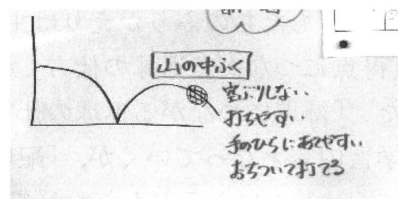 山の中ふく
空ぶりしない
打ちやすい
手のひらにあてやすい
おちついて打てる